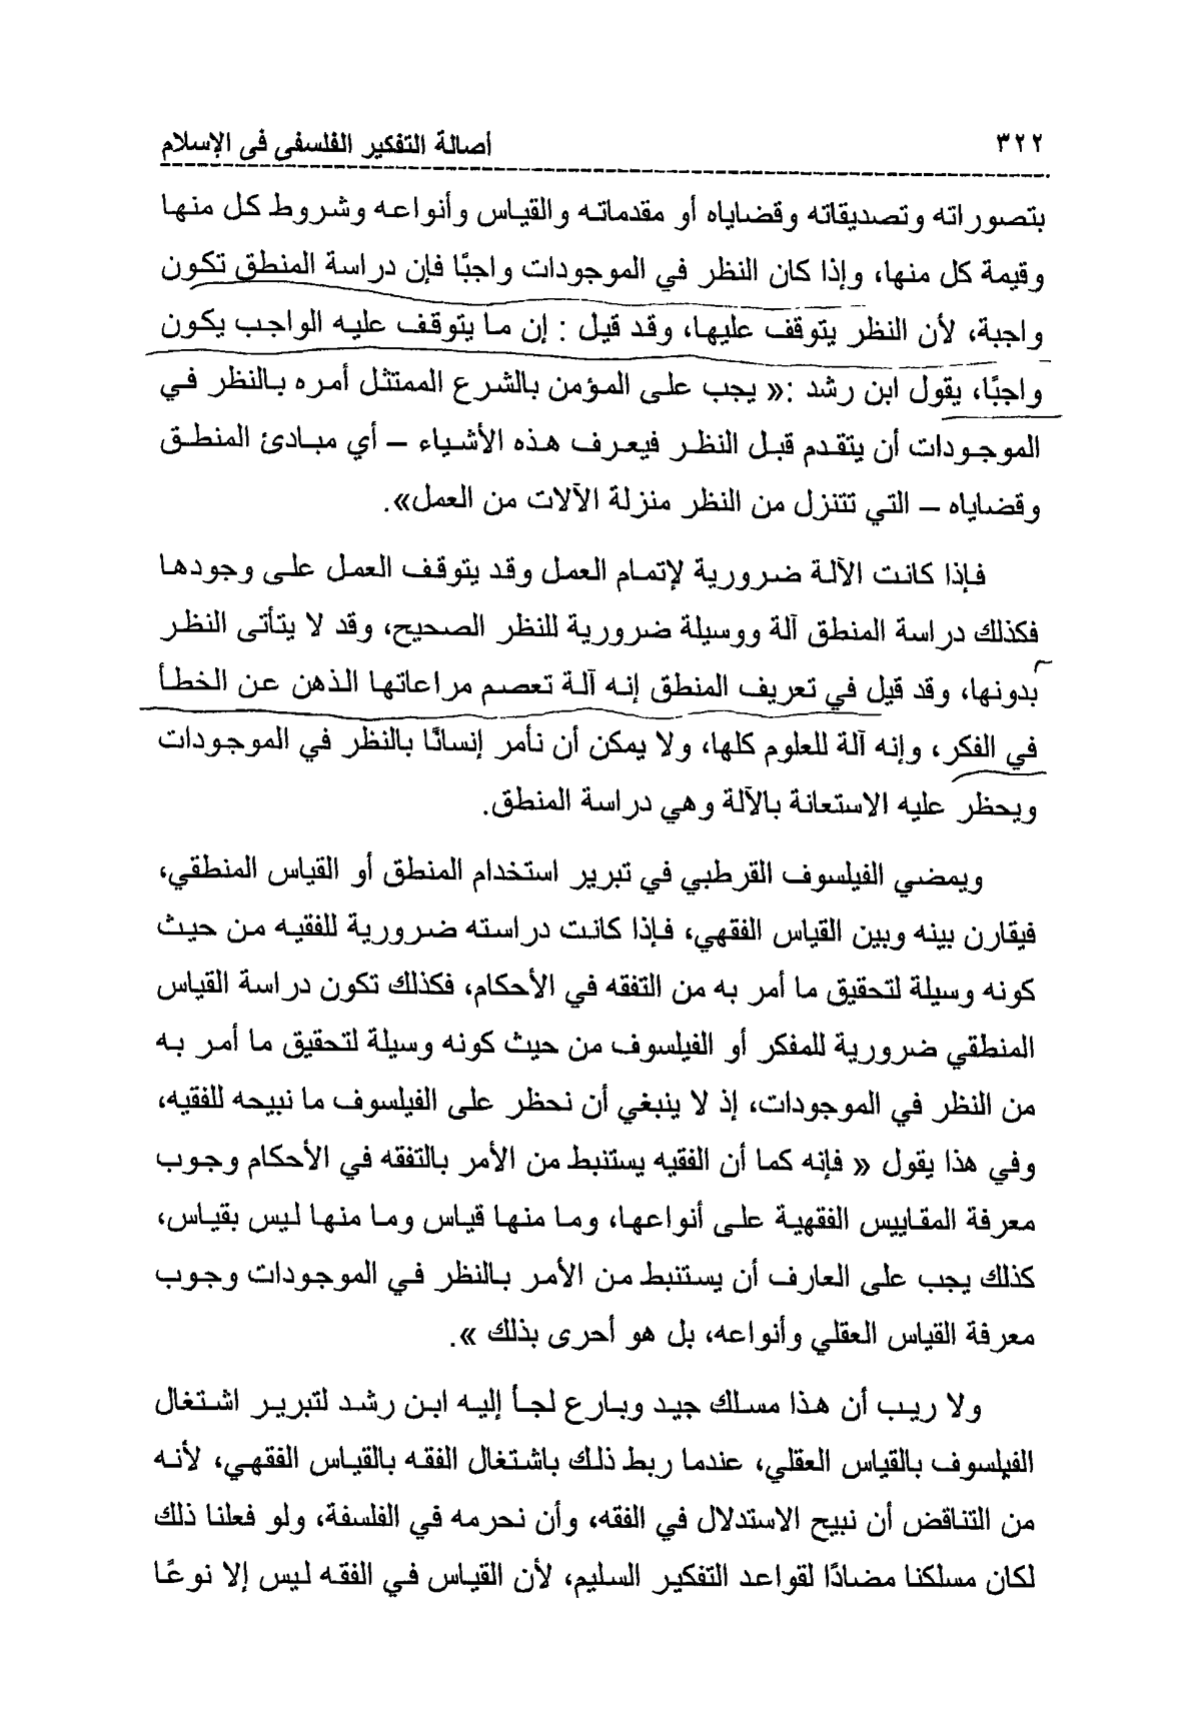 ٣٢٢ أصالة التفكير الفلسفى فى الإسلام
بتصوراته وتصديقاته وقضاياه أو مقدماته والقياس وأنواعه وشروط كل منها
وقيمة كل منها، وإذا كان النظر في الموجودات واجبًا فإن دراسة المنطق تكون
واجبة، لأن النظر يتوقف عليها، وقد قيل : إن ما يتوقف عليه الواجب يكون
واجبًا، يقول ابن رشد :« يجب على المؤمن بالشرع الممتثل أمره بالنظر في
الموجودات أن يتقدم قبل النظر فيعرف هذه الأشياء – أي مبادئ المنطق
وقضاياه – التي تتنزل من النظر منزلة الآلات من العمل».
فإذا كانت الآلة ضرورية لإتمام العمل وقد يتوقف العمل على وجودها
فكذلك دراسة المنطق آلة ووسيلة ضرورية للنظر الصحيح، وقد لا يتأتى النظر
بدونها، وقد قيل في تعريف المنطق إنه آلة تعصم مراعاتها الذهن عن الخطأ
في الفكر، وإنه آلة للعلوم كلها، ولا يمكن أن نأمر إنسانًا بالنظر في الموجودات
ويحظر عليه الاستعانة بالآلة وهي دراسة المنطق.
ويمضي الفيلسوف القرطبي في تبرير استخدام المنطق أو القياس المنطقي،
فيقارن بينه وبين القياس الفقهي، فإذا كانت دراسته ضرورية للفقيه من حيث
كونه وسيلة لتحقيق ما أمر به من التفقه في الأحكام، فكذلك تكون دراسة القياس
المنطقي ضرورية للمفكر أو الفيلسوف من حيث كونه وسيلة لتحقيق ما أمر به
من النظر في الموجودات، إذ لا ينبغي أن نحظر على الفيلسوف ما نبيحه للفقيه،
وفي هذا يقول « فإنه كما أن الفقيه يستنبط من الأمر بالتفقه في الأحكام وجوب
معرفة المقاييس الفقهية على أنواعها، وما منها قياس وما منها ليس بقياس،
كذلك يجب على العارف أن يستنبط من الأمر بالنظر في الموجودات وجوب
معرفة القياس العقلي وأنواعه، بل هو أحرى بذلك ».
ولا ريب أن هذا مسلك جيد وبارع لجأ إليه ابن رشد لتبرير اشتغال
الفيلسوف بالقياس العقلي، عندما ربط ذلك باشتغال الفقه بالقياس الفقهي، لأنه
من التناقض أن نبيح الاستدلال في الفقه، وأن نحرمه في الفلسفة، ولو فعلنا ذلك
لكان مسلكنا مضادًا لقواعد التفكير السليم، لأن القياس في الفقه ليس إلا نوعًا